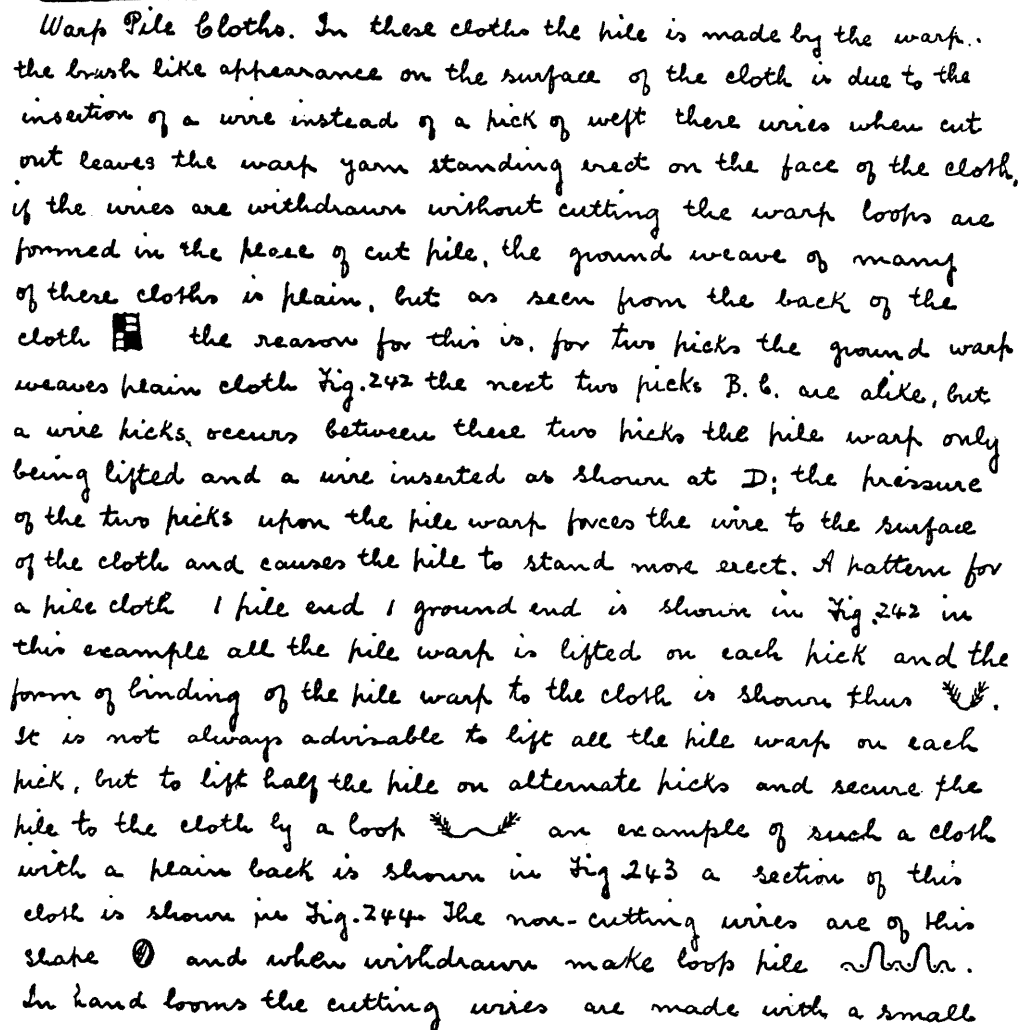 Warp Pile Cloths. In these cloths the pile is made by the warp..
the brush like appearance on the surface of the cloth is due to the
insertion of a wire instead of a pick of weft there wires when cut
out leaves the warp yarn standing erect on the face of the cloth,
if the wires are withdrawn without cutting the warp loops are
formed in the place of cut pile, the ground weave of many
of these cloths is plain, but as seen from the back of the
cloth the reason for this is, for two picks the ground warp
weaves plain cloth Fig. 242 the next two picks B. C. are alike, but
a wire picks, occurs between these two picks the pile warp only
being lifted and a wire inserted as shown at D; the pressure
of the two picks upon the pile warp forces the wire to the surface
of the cloth and causes the pile to stand more erect. A pattern for
a pile cloth 1 pile end 1 ground end is shown in Fig. 242 in
this example all the pile warp is lifted on each pick and the
form of binding of the pile warp to the cloth is shown thus .
It is not always advisable to lift all the pile warp on each
pick, but to lift half the pile on alternate picks and secure the
pile to the cloth by a loop an example of such a cloth
with a plain back is shown in Fig 243 a section of this
cloth is shown in Fig. 244. The non-cutting wires are of this
shape and when withdrawn make loop pile .
In hand looms the cutting wires are made with a small